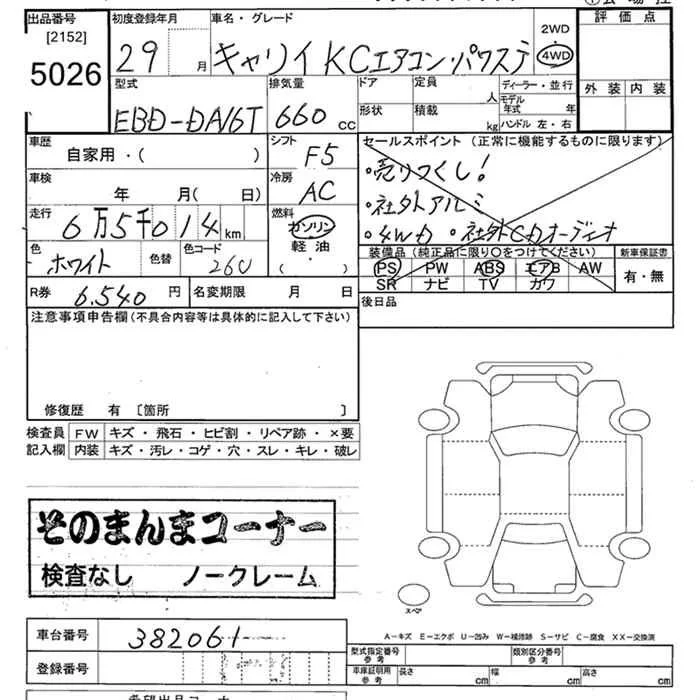 出品番号 初度登録年月 車名・グレード 2WD 評価点
[2152]
5026 29 月 キャリイ KCエアコン・パワステ 4WD
型式 排気量 ドア 定員 ディーラー・並行 外装 内装
人 モデル年式 年
EBD-DA16T 660 cc 形状 積載 kg ハンドル 左・右
車歴 シフト セールスポイント (正常に機能するものに限ります)
自家用・( ) F5 ・売りつくし!
車検 冷房 ・社外アルミ
年 月( 日) AC ・4WD ・社外CDオーディオ
走行 燃料 装備品 (純正品に限り○をつけてください) 新車保証書
6万5千014 km ガソリン
軽油
( )
PS PW ABS エアB AW 有・無
SR ナビ TV カワ
色 色替 色コード
ホワイト 26U
R券 6.540 円 名変期限 月 日 後日品
注意事項申告欄(不具合内容等は具体的に記入して下さい)
修復歴 有 [箇所 ]
検査員 FW キズ・飛石・ヒビ割・リペア跡・×要
記入欄 内装 キズ・汚レ・コゲ・穴・スレ・キレ・破レ
そのまんまコーナー
検査なし ノークレーム
スペア
A-キズ E-エクボ U-凹み W-補修跡 S-サビ C-腐食 XX-交換済
車台番号 382061
登録番号
型式指定番号 参考 類別区分番号 参考
車庫証明用 参考 長さ cm 幅 cm 高さ cm